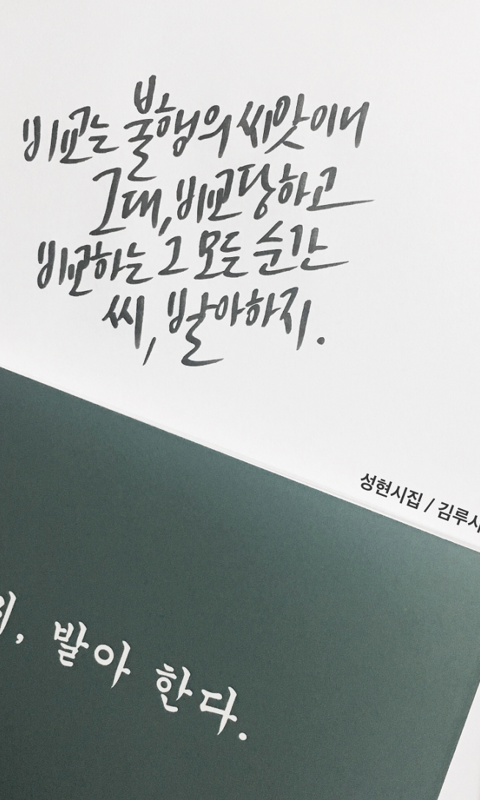 비교는 불행의 씨앗이니
그대, 비교당하고
비교하는 그 모든 순간
씨, 발아하지.
성현시집 / 김루시
발아 한다.